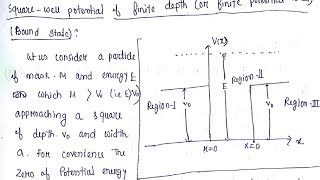 Square-well potential of finite depth (or finite potential
(Bound state)?
Let us consider a particle
of mass M and energy E
which M > V₀ (i.e E>V₀)
approaching a square
of depth V₀ and width
a. for covenience the
Zero of Potential energy
V(x)
E
E
Region-I
Region-II
Region-III
V₀
V₀
x=0
x=0
x